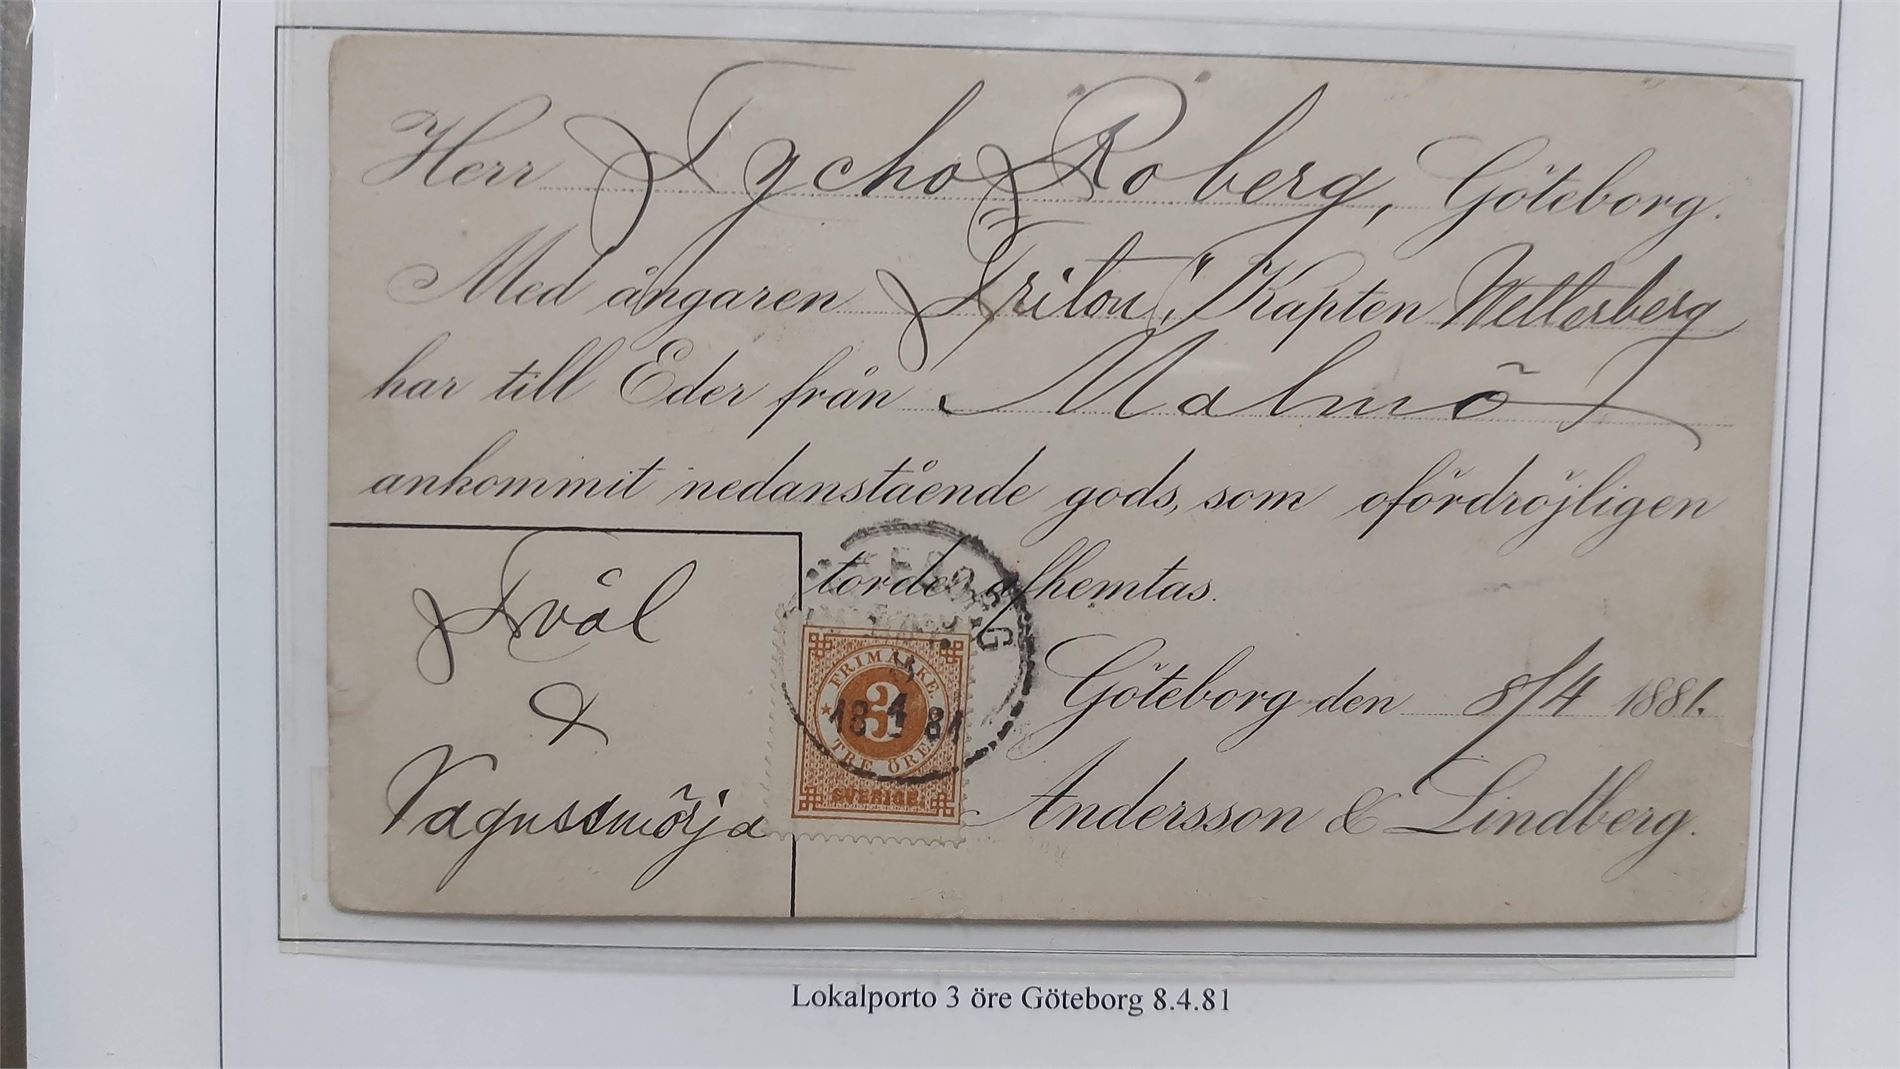 Herr Tycho Roberg, Göteborg.
Med ångaren "Triton", Kapten Wetterberg
har till Eder från Malmö
ankommit nedanstående gods, som ofördröjligen
torde afhemtas.
Tvål
&
Vagnssmörja
FRIMÄRKE
3
TRE ÖRE
SVERIGE
81
Göteborg den 8/4 1881.
Andersson & Lindberg.
Lokalporto 3 öre Göteborg 8.4.81